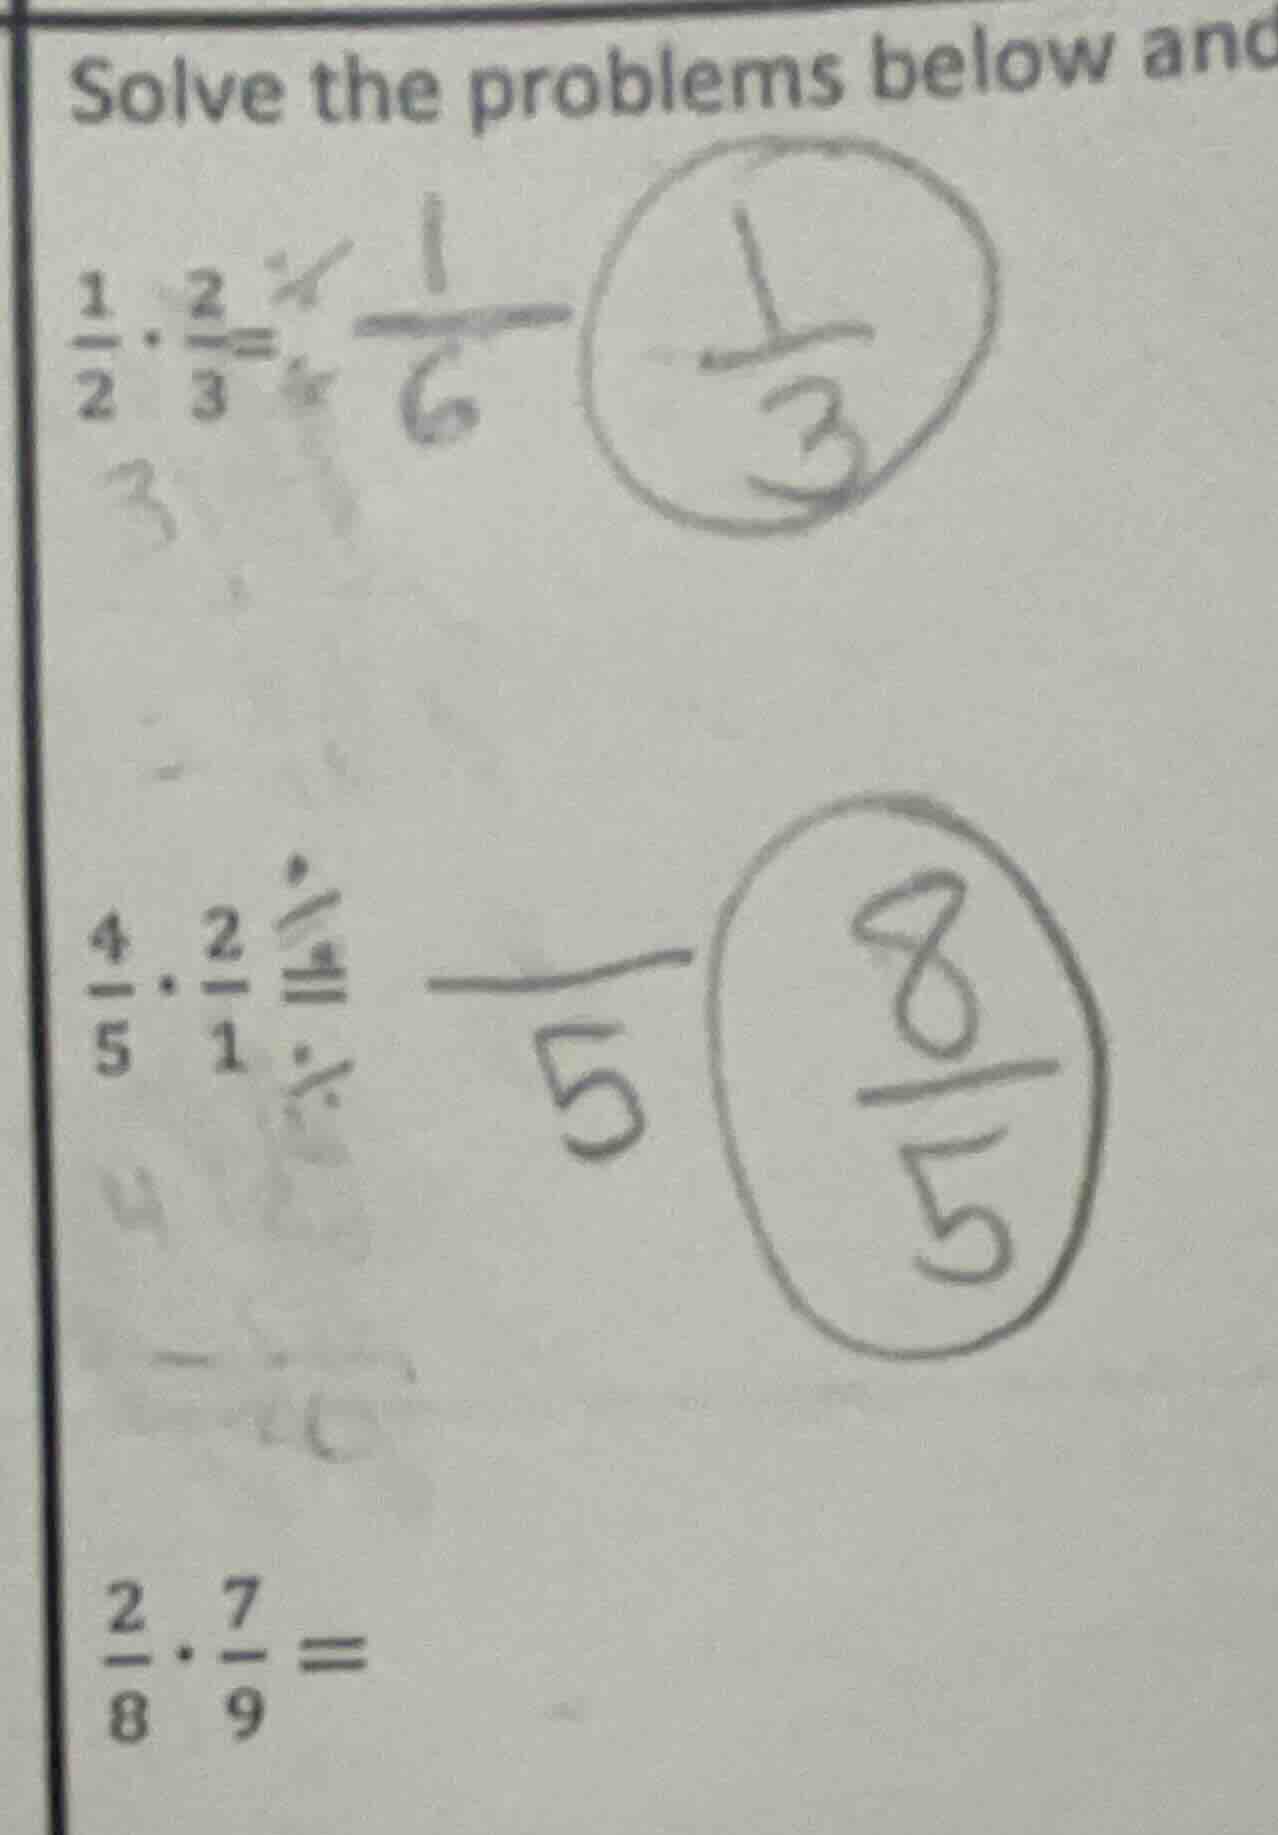 Solve the problems below and
1/2 · 2/3 = 1/6 1/3
3
4/5 · 2/1 = /5 8/5
4
10
2/8 · 7/9 =